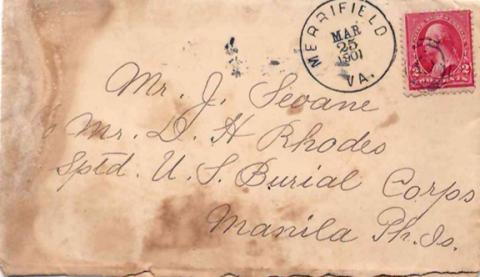 MERRIFIELD
MAR
25
1901
VA.
2 2
Mr. J. Seoane
Mr. D. H Rhodes
Sptd. U. S. Burial Corps
Manila Ph. Is.